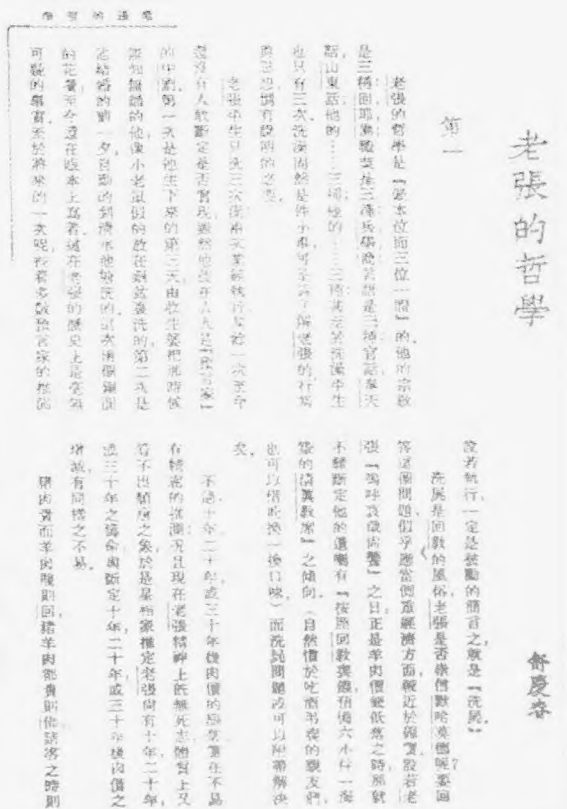 老張的哲學
舒慶春
第一
老張的哲學是『錢本位而三位一體』的他的宗教
是三種回耶佛職業是三種兵學商言語是三種官話奉天
話山東話他的……三種他的……三種甚至於洗澡平生
也只有三次洗澡固然是件小事可是為了解老張的行為
與思想倒有說明的必要
老張平生只洗三次澡兩次業經執行其餘一次至今
還沒有人敢斷定是否實現雖然他生在人人是『預言家』
的中國第一次是他生下來的第三天由收生婆把那時候
無知無識的他像小老鼠似的放在銅盆裏洗的第二次是
他結婚的前一夕自動的到清水池塘洗的這次兩個銅元
的花費至今還在賬本上寫着這在老張的歷史上是毫無
可疑的事實至於將來的一次呢按着多數預言家的推測
設若執行一定是被動的簡言之就是『洗屍』
洗屍是回教的風俗老張是否崇信默哈莫德呢要回
答這個問題似乎應當側重經濟方面較近於確實設若老
張『嗚呼哀哉尚饗』之日正是羊肉價錢低落之時那就
不難斷定他的遺囑有『按照回教喪儀預備六小件一海
碗的清真教席』之傾向（自然慣於吃酒弔喪的親友們
也可以借此換一換口味）而洗屍問題或可以附帶解決
矣
不過十年二十年或三十年後肉價的漲落實在不易
有精密的推測況且現在老張精神上既無死志體質上又
看不出頹唐之象於是星相家推定老張尚有十年二十年
或三十年之壽命與斷定十年二十年或三十年後肉價之
增減有同樣之不易
豬肉貴而羊肉賤則回豬羊肉都貴則佛請客之時則
老張的哲學